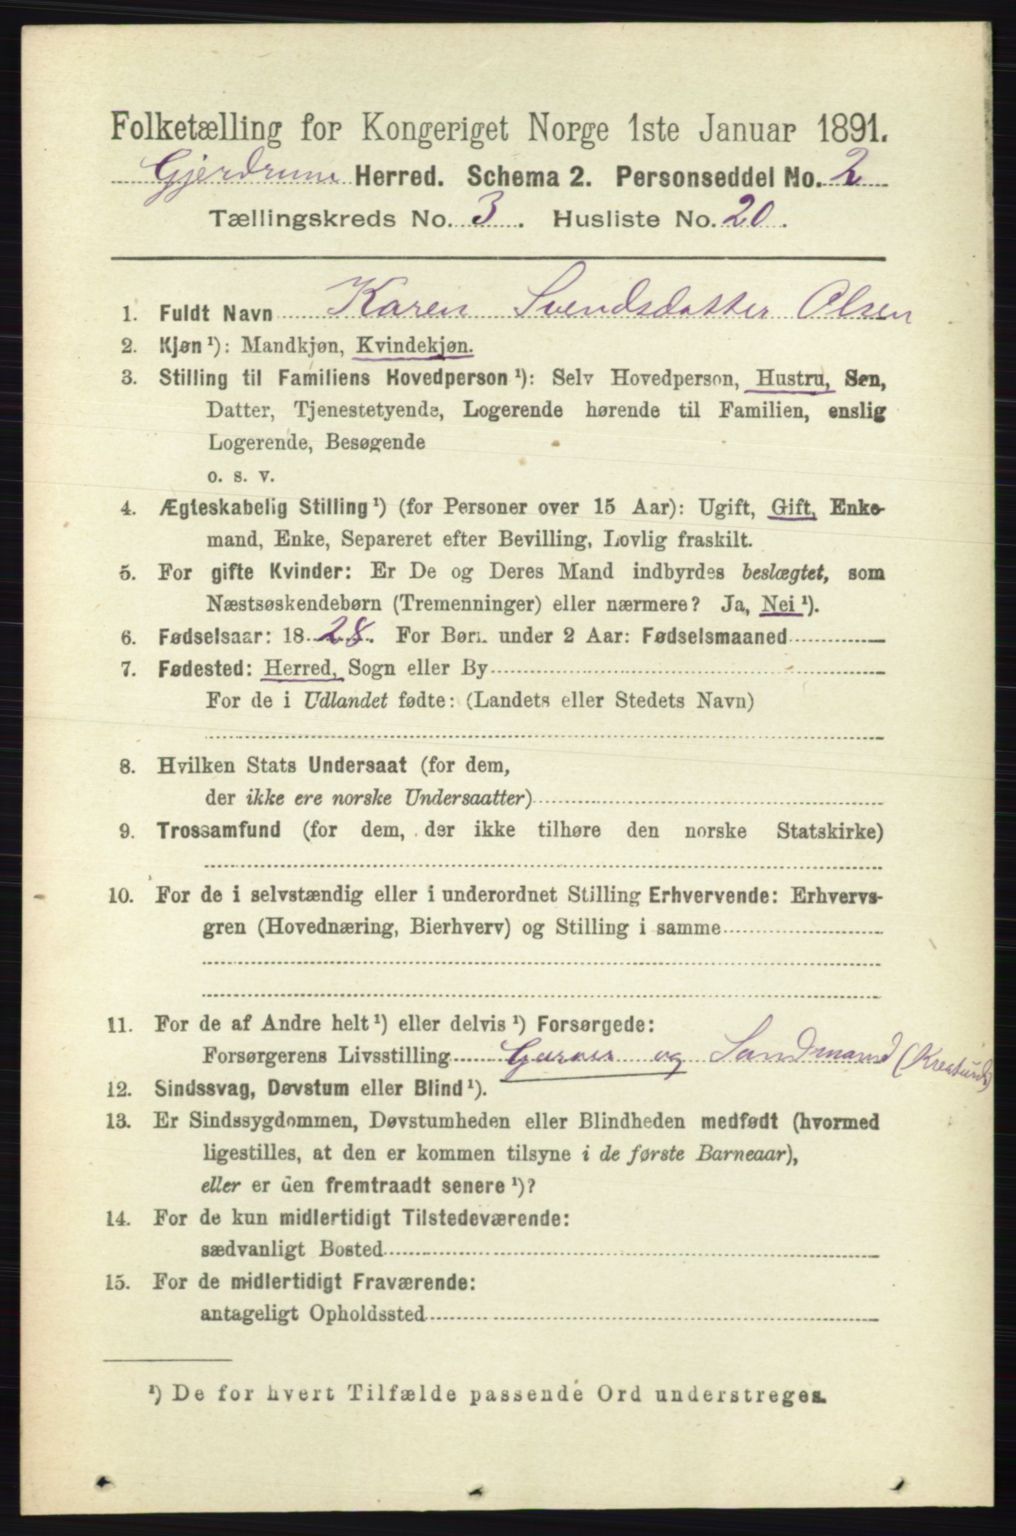 Folketælling for Kongeriget Norge 1ste Januar 1891.
Gjerdrum Herred. Schema 2. Personseddel No. 2
Tællingskreds No. 3. Husliste No. 20.
1. Fuldt Navn Karen Svendsdatter Olsen
2. Kjøn¹): Mandkjøn, Kvindekjøn.
3. Stilling til Familiens Hovedperson¹): Selv Hovedperson, Hustru, Søn,
Datter, Tjenestetyende, Logerende hørende til Familien, enslig
Logerende, Besøgende
o. s. v.
4. Ægteskabelig Stilling¹) (for Personer over 15 Aar): Ugift, Gift, Enke-
mand, Enke, Separeret efter Bevilling, Lovlig fraskilt.
5. For gifte Kvinder: Er De og Deres Mand indbyrdes beslægtet, som
Næstsøskendebørn (Tremenninger) eller nærmere? Ja, Nei¹).
6. Fødselsaar: 1828. For Børn under 2 Aar: Fødselsmaaned
7. Fødested: Herred, Sogn eller By
For de i Udlandet fødte: (Landets eller Stedets Navn)
8. Hvilken Stats Undersaat (for dem,
der ikke ere norske Undersaatter)
9. Trossamfund (for dem, der ikke tilhøre den norske Statskirke)
10. For de i selvstændig eller i underordnet Stilling Erhvervende: Erhvervs-
gren (Hovednæring, Bierhverv) og Stilling i samme
11. For de af Andre helt¹) eller delvis¹) Forsørgede:
Forsørgerens Livsstilling og
12. Sindssvag, Døvstum eller Blind¹).
13. Er Sindssygdommen, Døvstumheden eller Blindheden medfødt (hvormed
ligestilles, at den er kommen tilsyne i de første Barneaar),
eller er den fremtraadt senere¹)?
14. For de kun midlertidigt Tilstedeværende:
sædvanligt Bosted
15. For de midlertidigt Fraværende:
antageligt Opholdssted
¹) De for hvert Tilfælde passende Ord understreges.